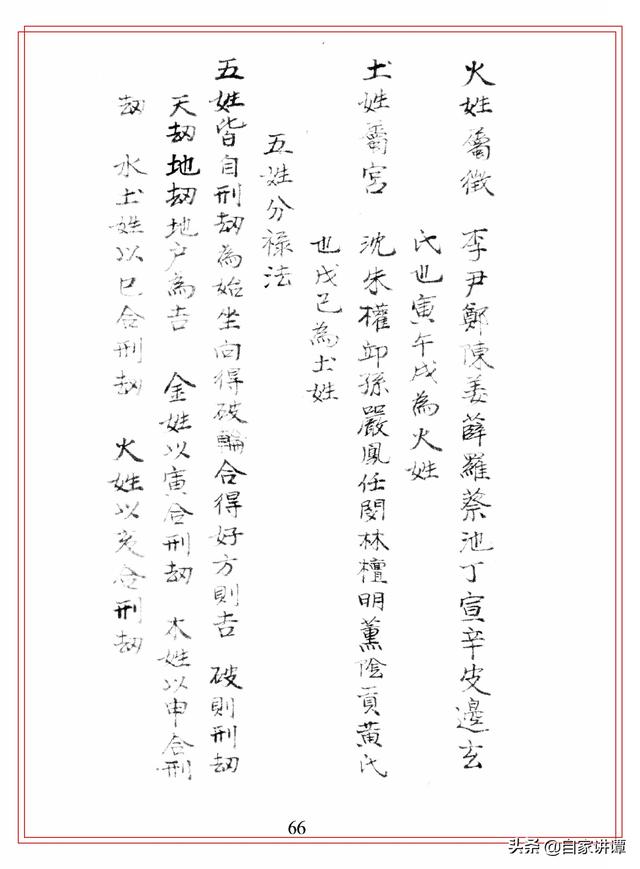 火姓屬徵　李尹鄭陳姜薛羅蔡池丁宣辛皮邊玄
氏也寅午戌為火姓
土姓屬宮　沈朱權邱孫嚴鳳任閔林檀明薰陰貢黃氏
也戊己為土姓
五姓分祿法
五姓皆自刑刼為始坐向得破輪合得好方則吉　破則刑刼
天刼地刼地户為吉　金姓以寅合刑刼　木姓以申合刑
刼　水土姓以巳合刑刼　火姓以亥合刑刼
66
头条 @自家讲谭